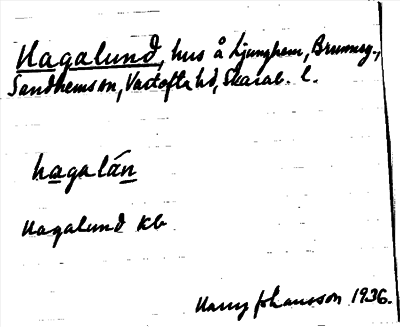 Hagalund, hus å Ljunghem, Brunneg.,
Sandhemss n, Vartofta hd, Skarab. l.
hagalán
Hagalund Kb
Harry Johansson 1936.